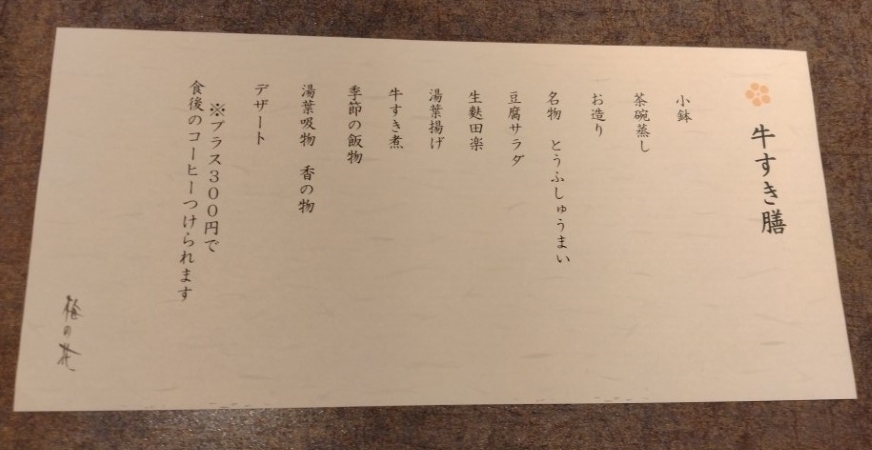 牛すき膳
小鉢
茶碗蒸し
お造り
名物　とうふしゅうまい
豆腐サラダ
生麩田楽
湯葉揚げ
牛すき煮
季節の飯物
湯葉吸物　香の物
デザート
※プラス300円で
食後のコーヒーつけられます
梅の花